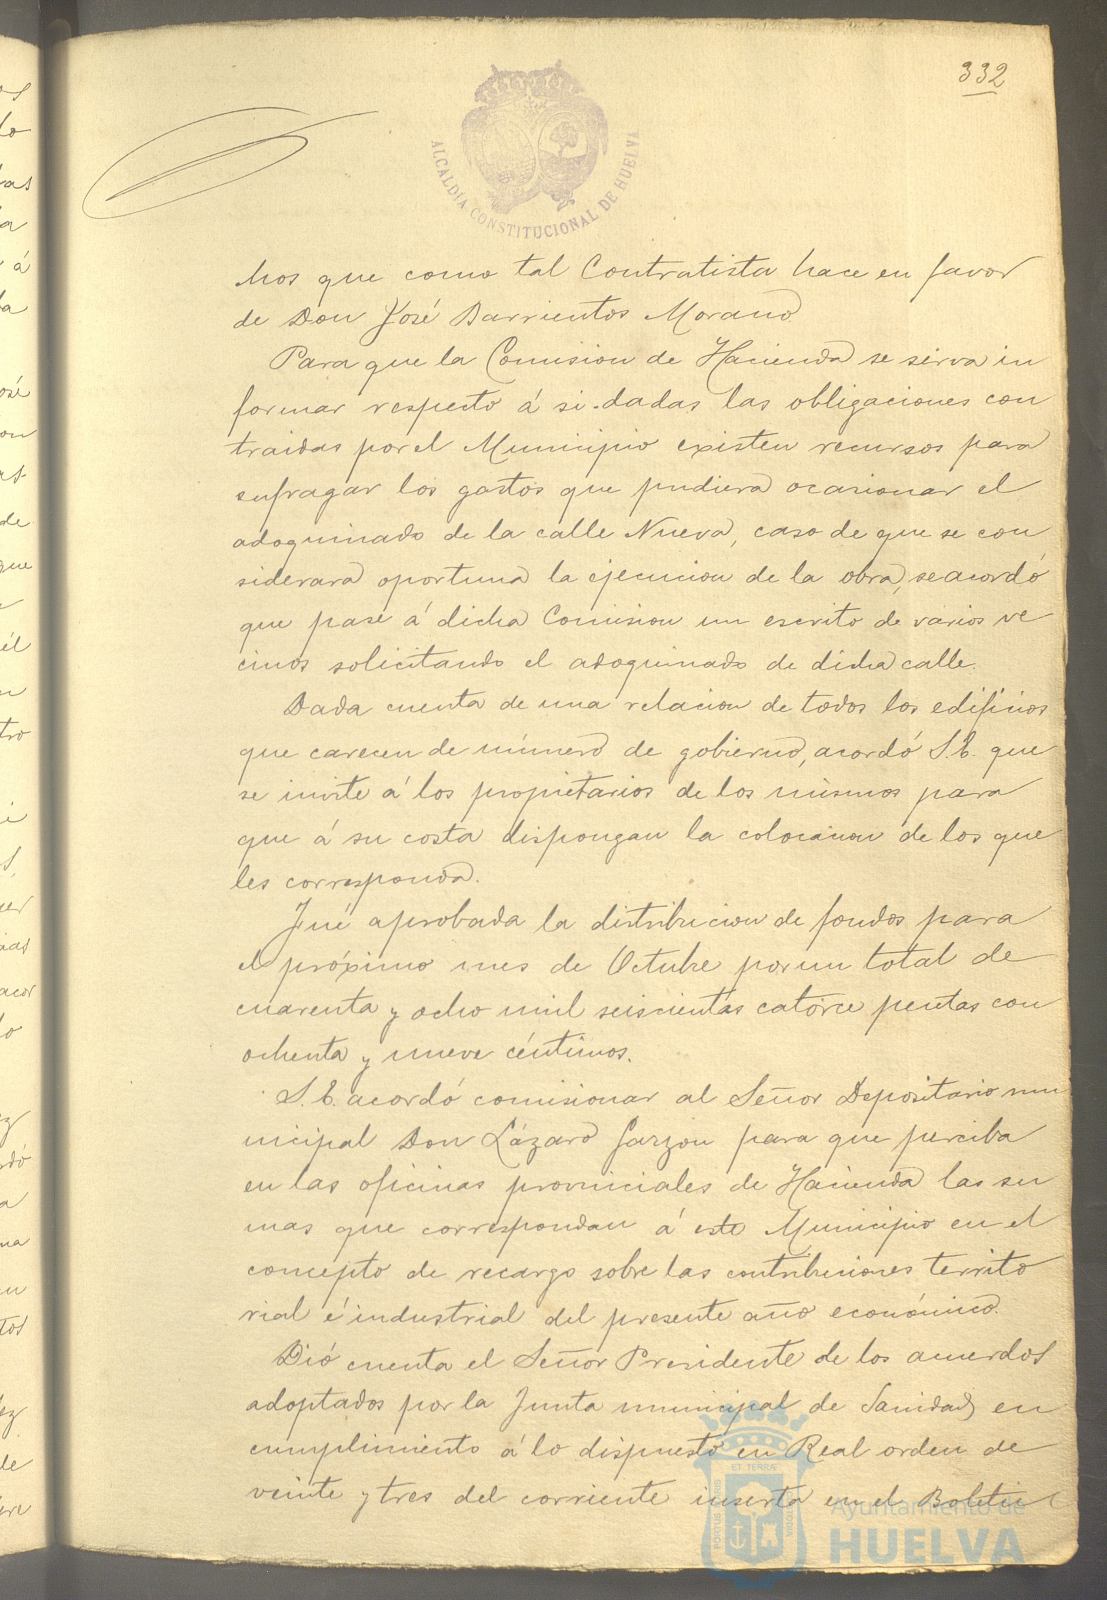 332
ALCALDÍA CONSTITUCIONAL DE HUELVA
hos que como tal Contratista hace en favor
de Don José Barrientos Morano
Para que la Comision de Hacienda se sirva in
formar respecto á si dadas las obligaciones con
traidas por el Municipio existen recursos para
sufragar los gastos que pudiera ocasionar el
adoquinado de la calle Nueva, caso de que se con
siderara oportuna la ejecucion de la obra, se acordó
que pase á dicha Comision un escrito de varios ve
cinos solicitando el adoquinado de dicha calle.
Dada cuenta de una relacion de todos los edificios
que carecen de número de gobierno, acordó S.E. que
se invite á los propietarios de los mismos para
que á su costa dispongan la colocacion de los que
les corresponda.
Fué aprobada la distribucion de fondos para
el próximo mes de Octubre por un total de
cuarenta y ocho mil seiscientas catorce pesetas con
ochenta y nueve céntimos.
S.E. acordó comisionar al Señor Depositario mu
nicipal Don Lázaro Garzon para que perciba
en las oficinas provinciales de Hacienda las su
mas que correspondan á este Municipio en el
concepto de recargo sobre las contribuciones territo
rial é industrial del presente año económico.
Dió cuenta el Señor Presidente de los acuerdos
adoptados por la Junta municipal de Sanidad, en
cumplimiento á lo dispuesto en Real orden de
veinte y tres del corriente inserta en el Boletin
Ayuntamiento de
HUELVA